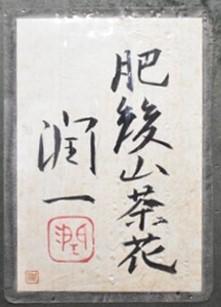 肥後山茶花
潤一
潤